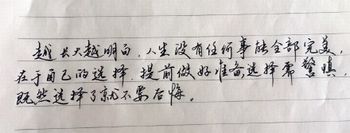 越长大越明白,人生没有任何事能全部完美,
在于自己的选择,提前做好准备,选择需警慎,
既然选择了就不要后悔。